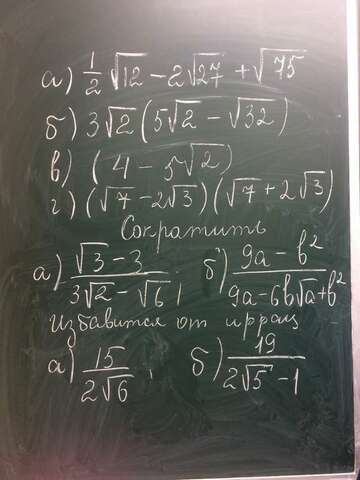 а) 1/2 √12 − 2√27 + √75
б) 3√2 (5√2 − √32)
в) (4 − 5√2)
г) (√7 − 2√3) (√7 + 2√3)
Сократить
а) (√3 − 3)/(3√2 − √6), б) (9a − b²)/(9a − 6b√a + b²)
Избавится от иррац
а) 15/(2√6), б) 19/(2√5 − 1)